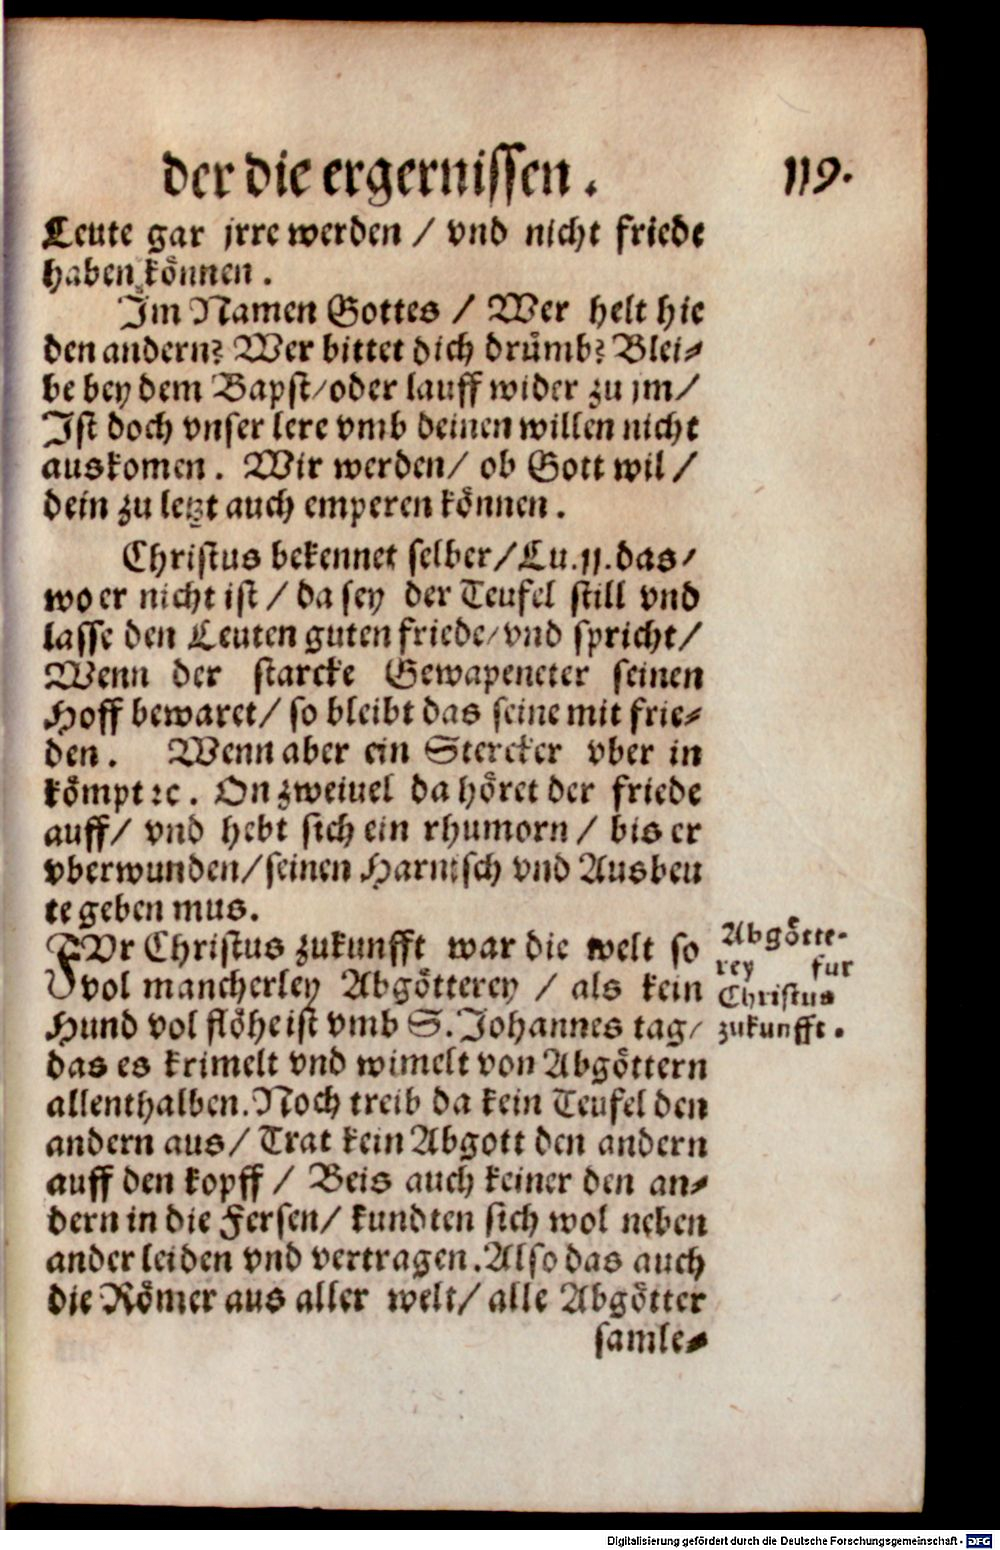 der die ergernissen. 119.
Leute gar jrre werden / vnd nicht friede
haben können.
Im Namen Gottes / Wer helt hie
den andern? Wer bittet dich drůmb? Blei⸗
be bey dem Bapst/oder lauff wider zu jm/
Ist doch vnser lere vmb deinen willen nicht
auskomen. Wir werden/ ob Gott wil/
dein zu letzt auch emperen können.
Christus bekennet selber/Lu.11.das/
wo er nicht ist / da sey der Teufel still vnd
lasse den Leuten guten friede/vnd spricht/
Wenn der starcke Gewapeneter seinen
Hoff bewaret/ so bleibt das seine mit frie⸗
den. Wenn aber ein Stercker vber in
kömpt ꝛc. On zweiuel da höret der friede
auff/ vnd hebt sich ein rhumorn / bis er
vberwunden/seinen Harnisch vnd Ausbeu
te geben mus.
VOr Christus zukunfft war die welt so
vol mancherley Abgötterey / als kein
Hund vol flöhe ist vmb S. Johannes tag/
das es krimelt vnd wimelt von Abgöttern
allenthalben. Noch treib da kein Teufel den
andern aus/ Trat kein Abgott den andern
auff den kopff / Beis auch keiner den an⸗
dern in die Fersen/ kundten sich wol neben
ander leiden vnd vertragen. Also das auch
die Römer aus aller welt/ alle Abgötter
samle⸗
Abgötte-
rey fur
Christus
zukunfft.
Digitalisierung gefördert durch die Deutsche Forschungsgemeinschaft - DFG